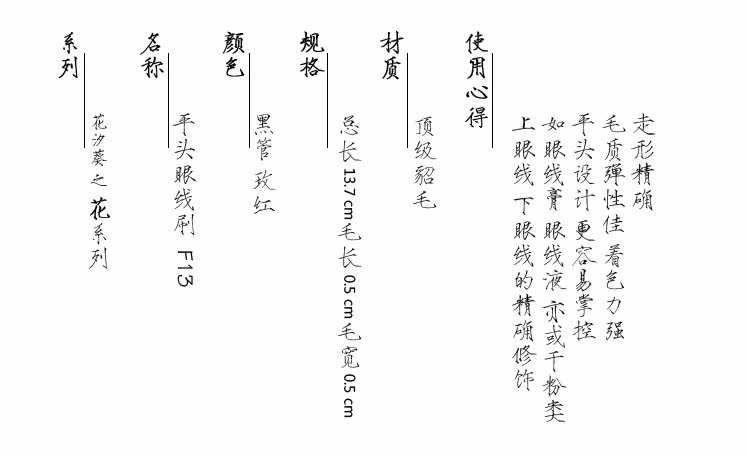 系列
花汐葵之花系列
名称
平头眼线刷 F13
颜色
黑管 玫红
规格
总长 13.7 cm 毛长 0.5 cm 毛宽 0.5 cm
材质
顶级貂毛
使用心得
走形精确
毛质弹性佳 着色力强
平头设计 更容易掌控
如眼线膏 眼线液 亦或干粉类
上眼线 下眼线的精确修饰